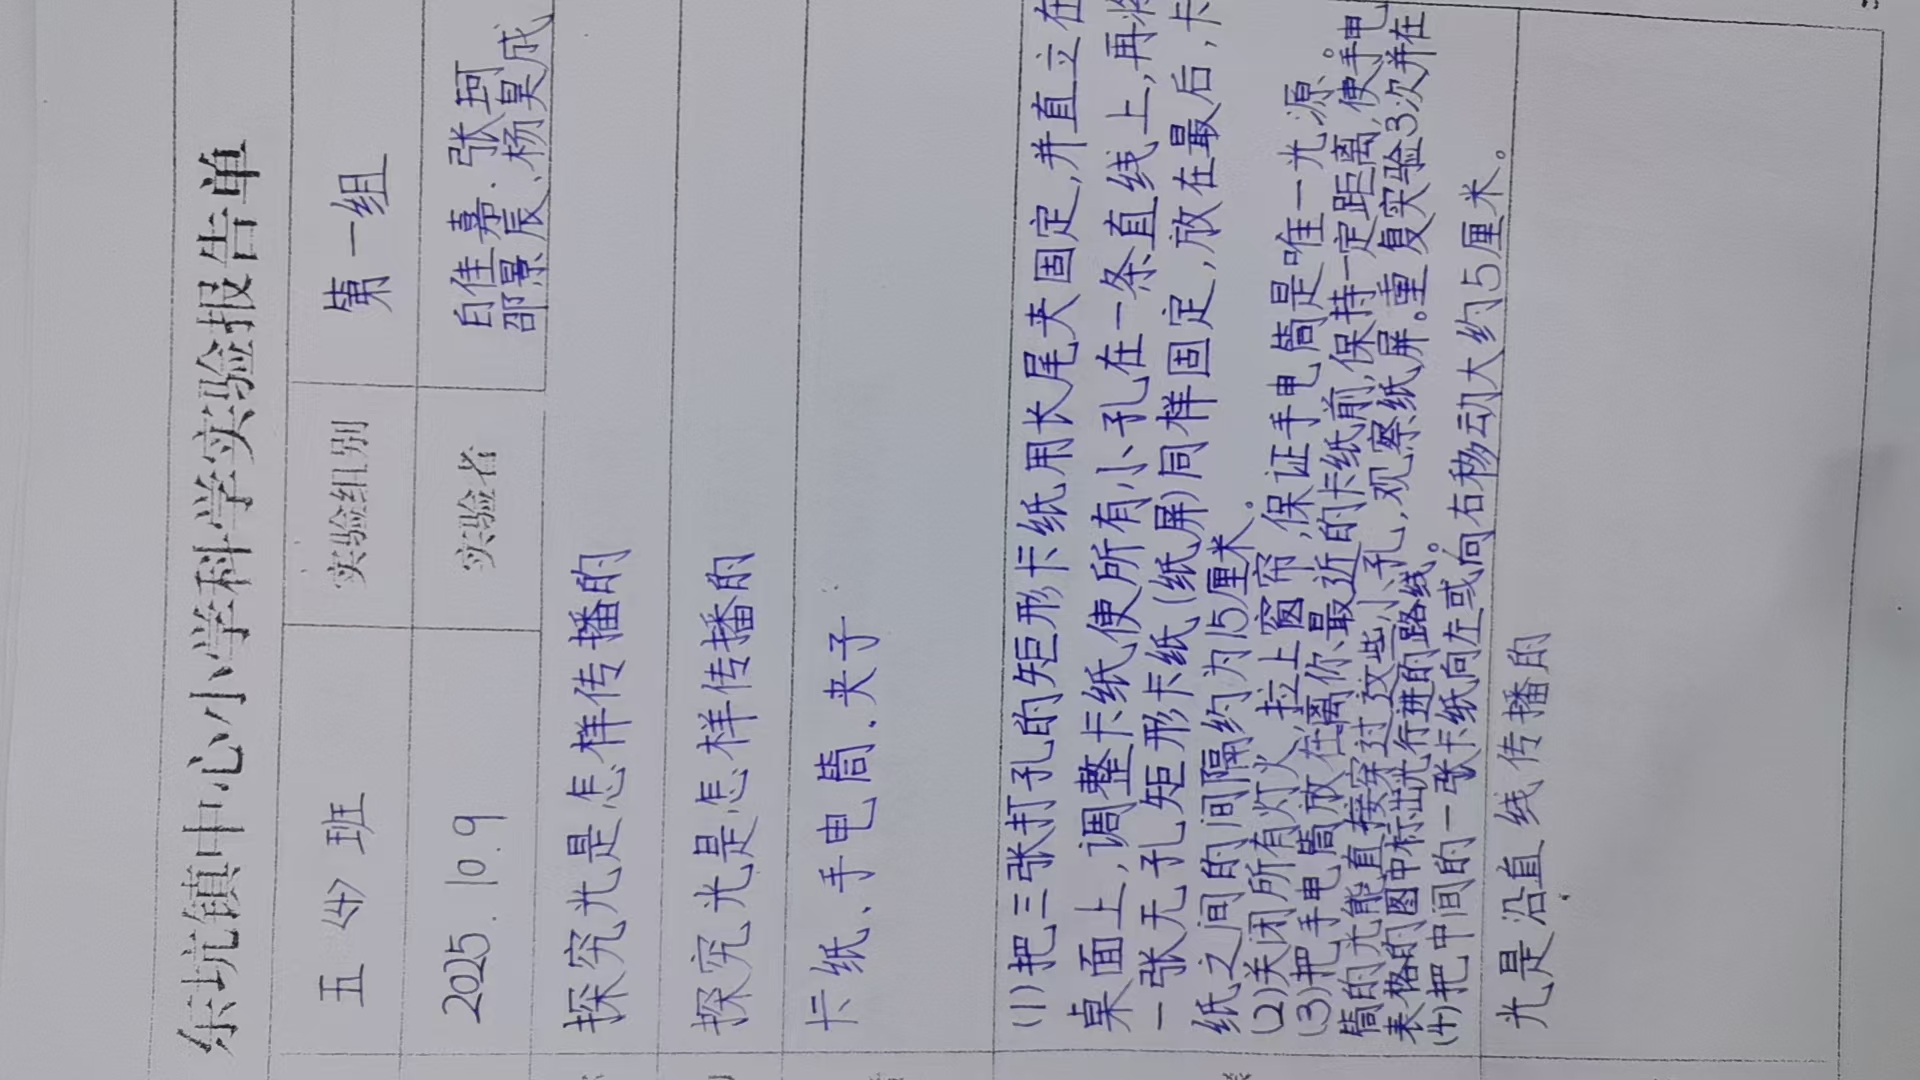 东坑镇中心小学科学实验报告单
五(4)班 实验组别 第一组
2025.10.9 实验者 印佳嘉.张珂
邵景辰、杨昊成
探究光是怎样传播的
探究光是怎样传播的
卡纸、手电筒、夹子
(1)把三张打孔的矩形卡纸用长尾夹固定,并直立在
桌面上,调整卡纸,使所有小孔在一条直线上,再将
一张无孔矩形卡纸(纸屏)同样固定,放在最后,卡
纸之间的间隔约为15厘米。
(2)关闭所有灯火,拉上窗帘,保证手电筒是唯一光源。
(3)把手电筒放在离你最近的卡纸前,保持一定距离,使手电
筒的光能直接穿过这些小孔,观察纸屏。重复实验3次并在
表格的图中标出光行进的路线。
(4)把中间的一张卡纸向左或向右移动大约5厘米。
光是沿直线传播的